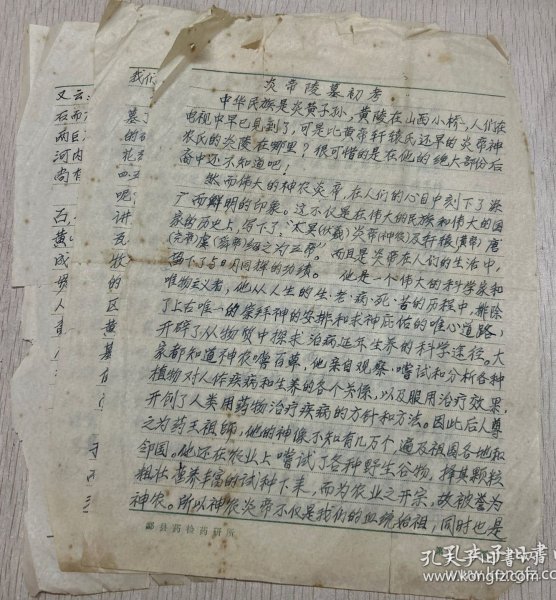 炎帝陵墓初考
中华民族是炎黄子孙，黄陵在山西小桥，人们在
电视中早已见到了，可是比黄帝轩辕氏还早的炎帝神
农氏的炎陵在哪里？很可惜的是在他的绝大部份后
裔中还不知道吧！
然而伟大的神农炎帝，在人们的心目中刻下了深
广而鲜明的印象。这不仅是在伟大的民族和伟大的国
家的历史上，写下了“太昊(伏羲)炎帝(神农)及轩辕(黄帝)唐
(尧帝)虞(舜帝)继之为五帝”。而且是炎帝在人们的生活中，
描下了与日月同辉的功绩。 他是一个伟大的科学家和
唯物主义者，他从人生的生·老·病·死·苦的历程中，排除
了上古唯一的崇拜神的安排和求神庇佑的唯心道路，
开辟了从物质中探求治病延年生养的科学途径。大
家都知道神农嚐百草，他亲自观察·嚐试和分析各种
植物对人体疾病和生养的各个关係，以及服用治疗效果，
开创了人类用药物治疗疾病的方针和方法。因此后人尊
之为药王祖师，他的神像不知有几万个，遍及祖国各地和
邻国。他还在农业上嚐试了各种野生谷物，择其颗粒
粗壮营养丰富的试种下来，而为农业之开宗，故被誉为
神农。所以神农炎帝不仅是我们的血统始祖，同时也是
酃县药检药研所
我们
墓了
的
花
四.五
呢
讲
瓦
牧
的
区
黄
墓
有
又云：
石而
而巨
河内
尚有
石
黄
成
男
人
孔夫子旧书网
www.kongfz.com